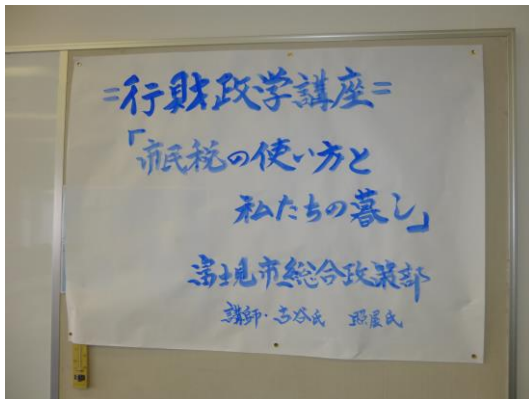 =行財政学講座=
「市民税の使い方と
私たちの暮し」
富士見市総合政策部
講師・古谷氏 照屋氏